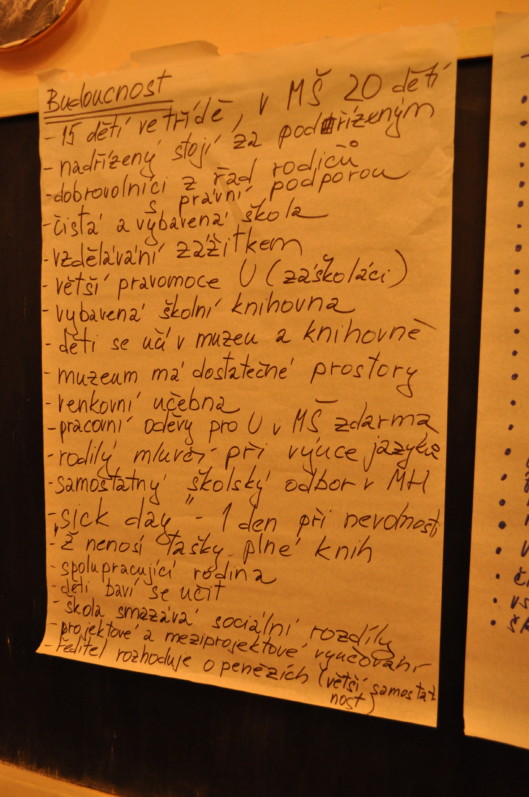 Budoucnost
- 15 dětí ve třídě, v MŠ 20 dětí
- nadřízený stojí za podřízeným
- dobrovolníci z řad rodičů
s právní podporou
- čistá a vybavená škola
- vzdělávání zážitkem
- větší pravomoce U (záškoláci)
- vybavená školní knihovna
- děti se učí v muzeu a knihovně
- muzeum má dostatečné prostory
- venkovní učebna
- pracovní oděvy pro U v MŠ zdarma
- rodilý mluvčí při výuce jazyka
- samostatný školský odbor v MH
- "sick day" - 1 den při nevolnosti
- Ž nenosí tašky plné knih
- spolupracující rodina
- děti baví se učit
- škola smazává sociální rozdíly
- projektové a meziprojektové vyučování
- ředitel rozhoduje o penězích (větší samostat
nost)